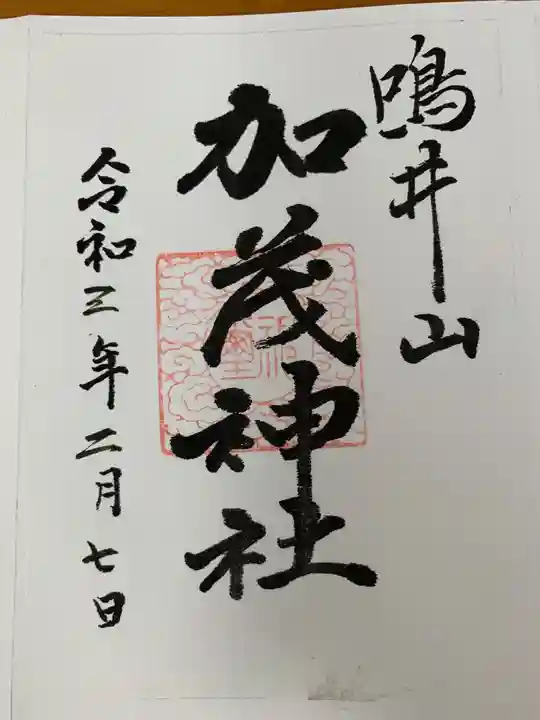 鳴井山
加茂神社
令和三年二月七日